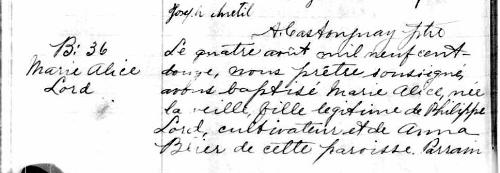 Joseph Métil
A. Castonguay ptre
B: 36
Marie Alice
Lord
Le quatre août mil neuf cent-
douze, nous prêtre soussigné,
avons baptisé Marie Alice, née
la veille, fille legitime de Philippe
Lord, cultivateur et de Anna
Brier de cette paroisse. Parrain